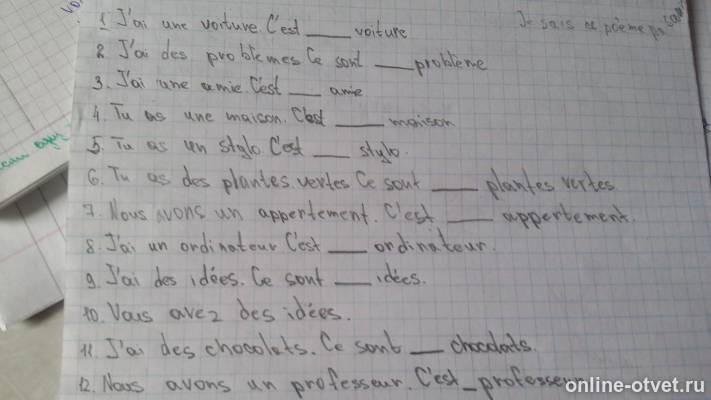 1. J'ai une voiture. C'est ___ voiture
Je sais ce poème par
2. J'ai des problèmes. Ce sont ___ problème
3. J'ai une amie. C'est ___ amie
4. Tu as une maison. C'est ___ maison
5. Tu as un stylo. C'est ___ stylo.
6. Tu as des plantes vertes. Ce sont ___ plantes vertes.
7. Nous avons un appertement. C'est ___ appertement.
8. J'ai un ordinateur. C'est ___ ordinateur.
9. J'ai des idées. Ce sont ___ idées.
10. Vous avez des idées.
11. J'ai des chocolats. Ce sont ___ chocolats.
12. Nous avons un professeur. C'est _ professeur
online-otvet.ru